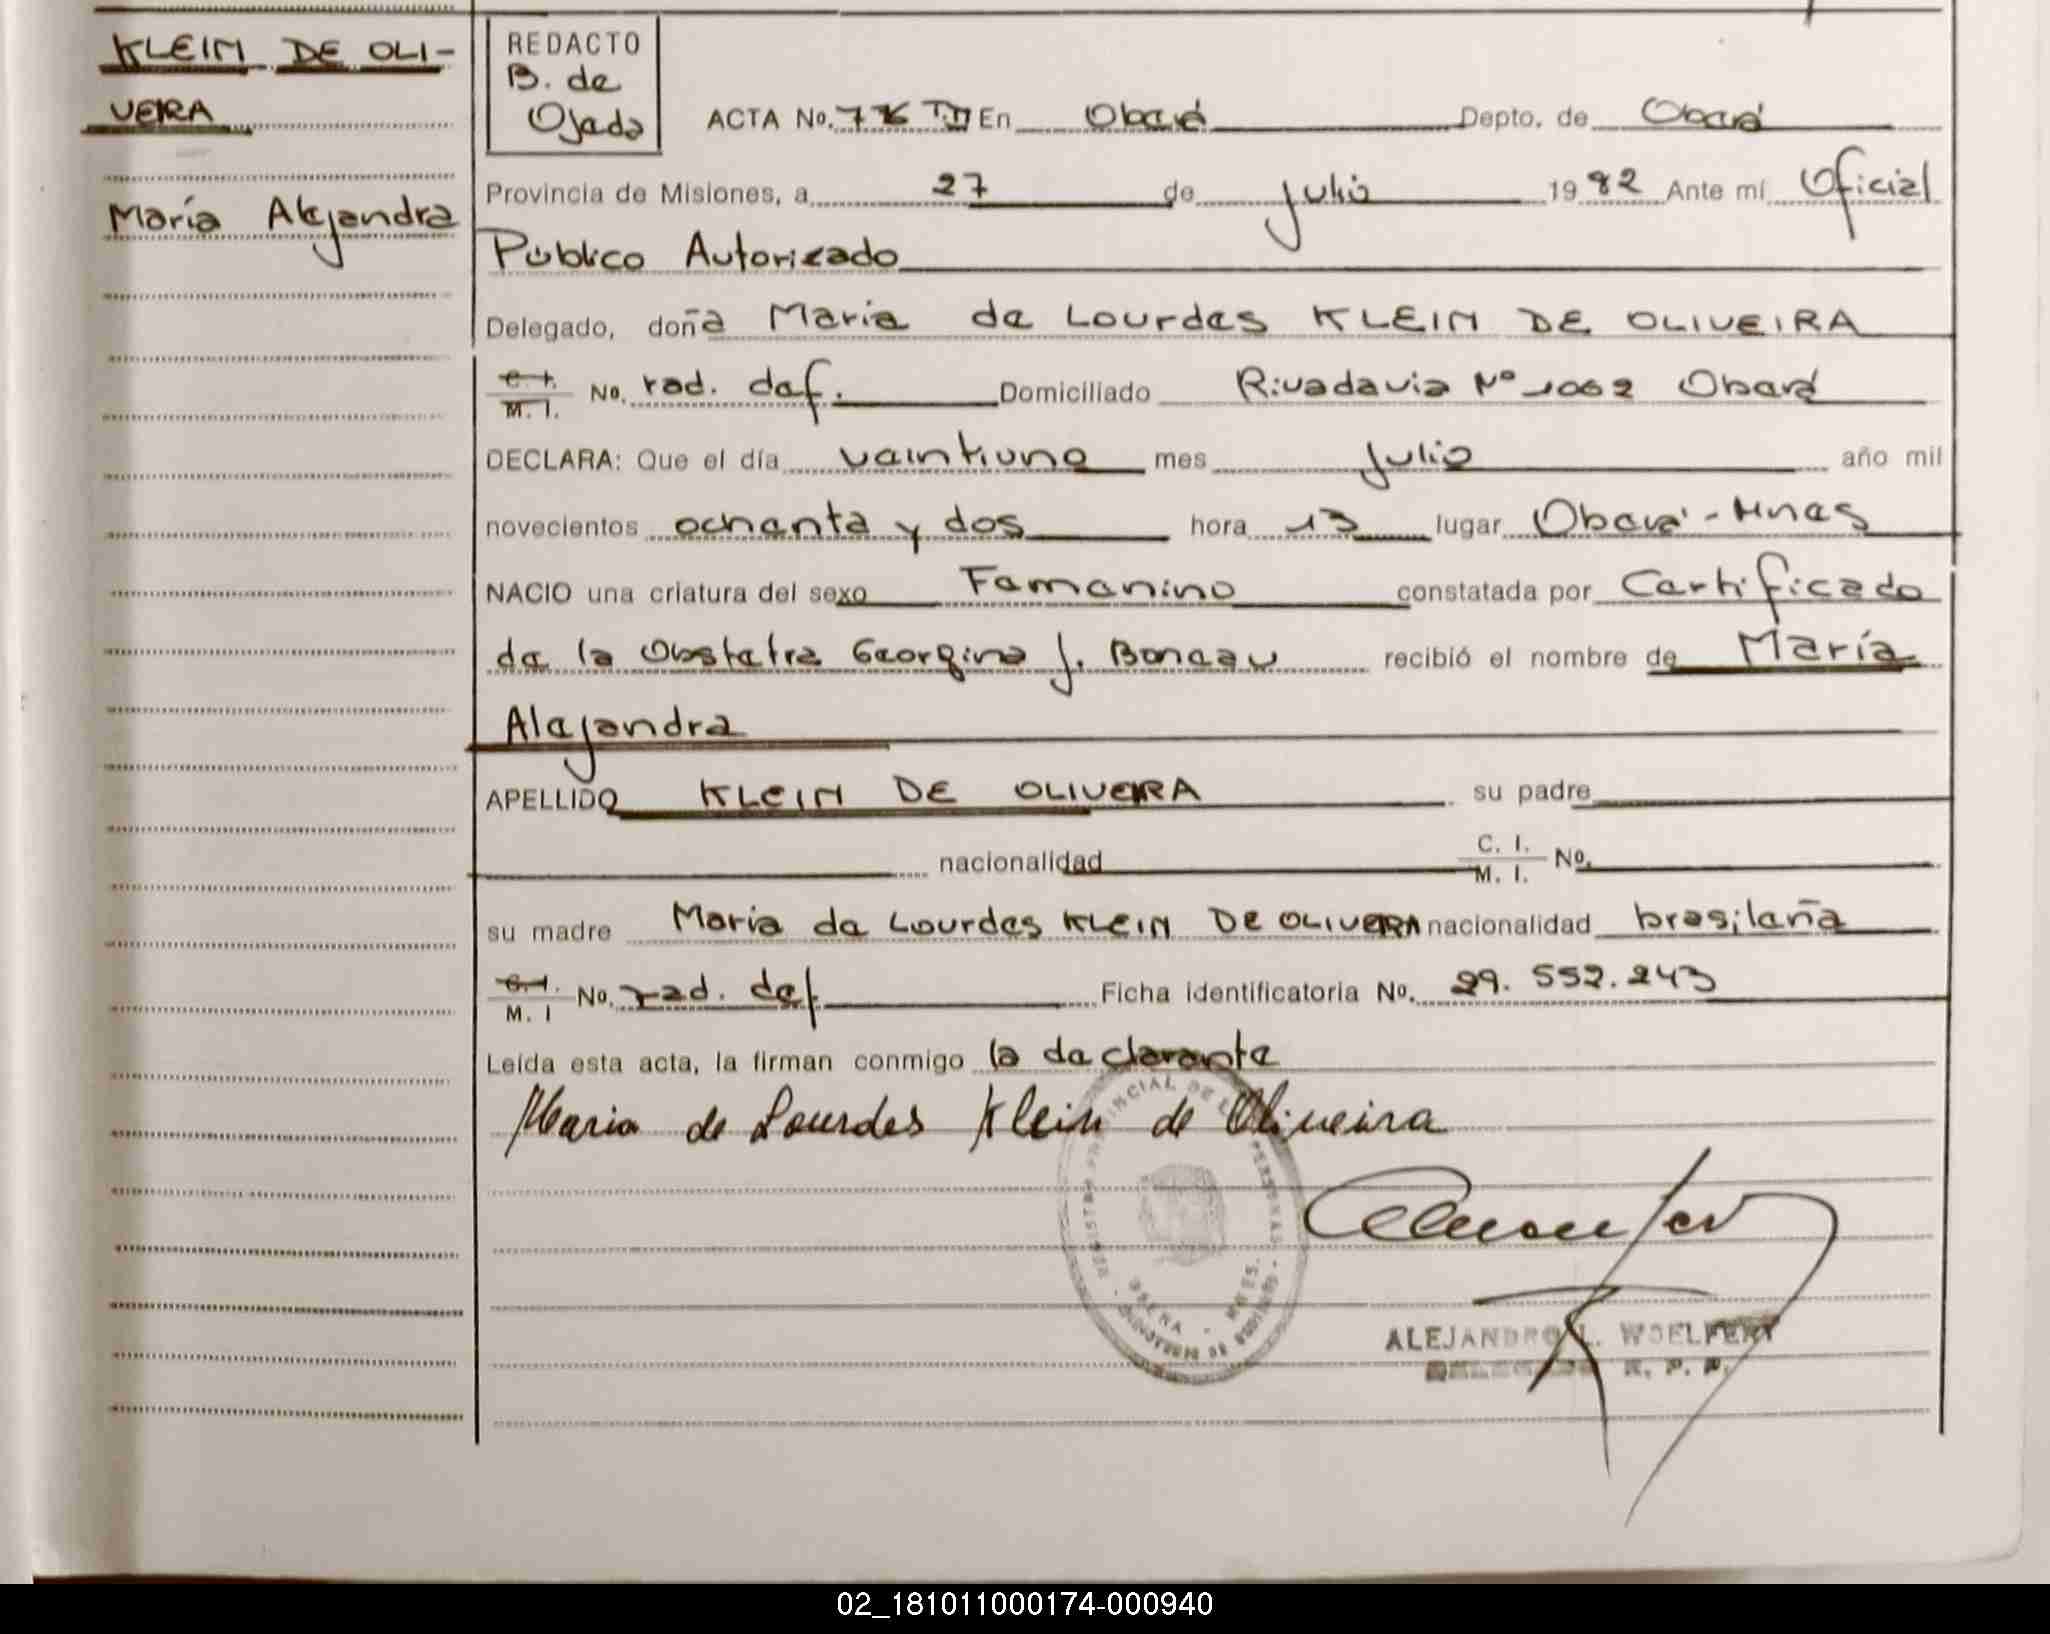 KLEIN DE OLI-
VEIRA
María Alejandra
REDACTO
B. de
Ojeda
ACTA No. 776 T.II En Oberá Depto. de Oberá
Provincia de Misiones, a 27 de julio 1982 Ante mí Oficial
Público Autorizado
Delegado, doña Maria de Lourdes KLEIN DE OLIVEIRA
C. I. M. I. No. rad. def. Domiciliado Rivadavia Nº 1062 Oberá
DECLARA: Que el día veintiuno mes julio año mil
novecientos ochenta y dos hora 13 lugar Oberá - Mnes
NACIO una criatura del sexo Femenino constatada por Certificado
de la Obstetra Georgina J. Boneau recibió el nombre de María
Alejandra
APELLIDO KLEIN DE OLIVEIRA su padre
nacionalidad C. I. M. I. No.
su madre Maria de Lourdes KLEIN DE OLIVEIRA nacionalidad brasileña
C. I. M. I No. rad. def Ficha identificatoria No. 29.552.243
Leída esta acta, la firman conmigo la declarante
Maria de Lourdes Klein de Oliveira
REGISTRO PROVINCIAL DE L PERSONAS
OBERA - MNES.
ALEJANDRO L. WOELFERT
DELEGADO R. P. P.
02_181011000174-000940